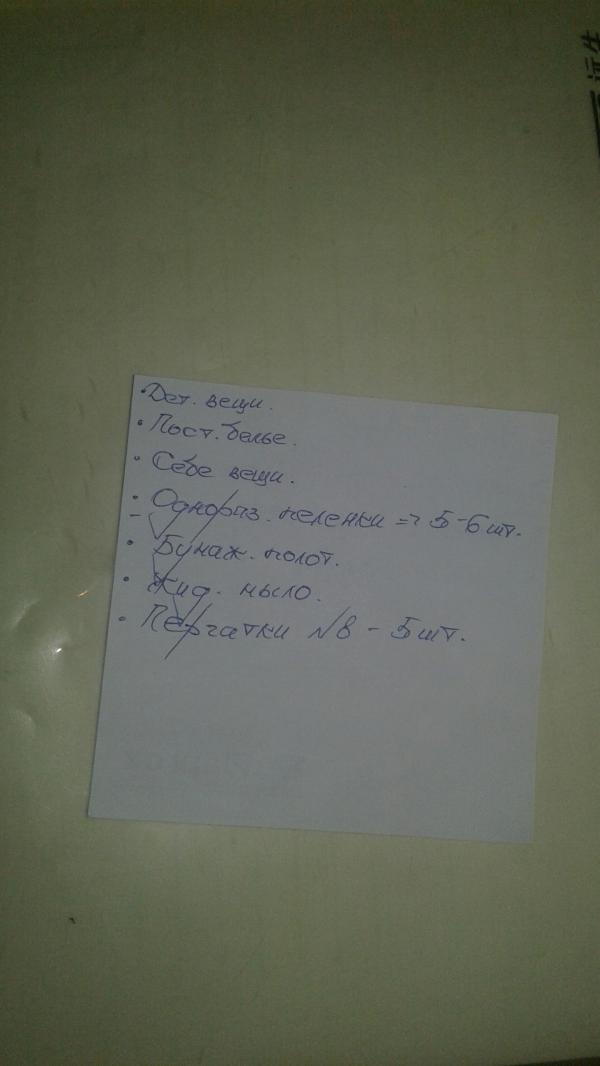 • Дет. вещи.
• Пост. белье.
• Себе вещи.
• Однораз. пеленки => 5-6 шт.
• Бумаж. полот.
• Жид. мыло.
• Перчатки №8 - 5 шт.